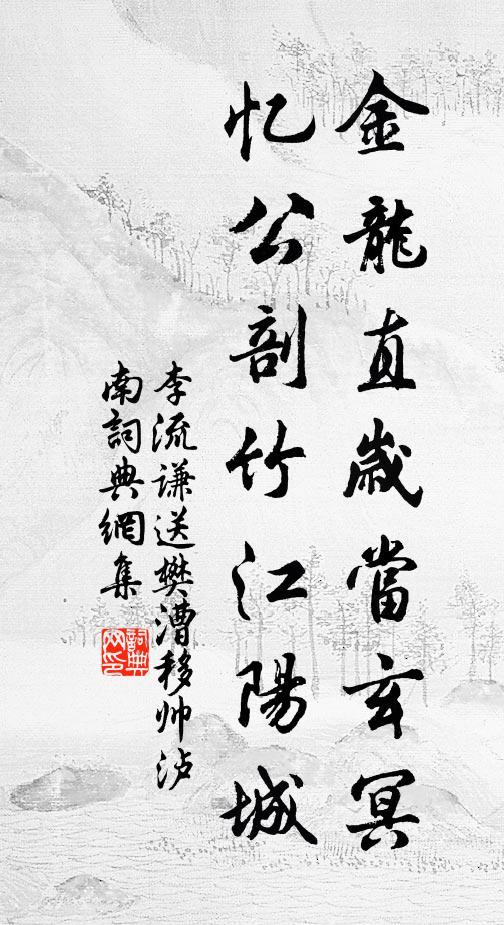 金龍直歲當玄冥
忆公剖竹江陽城
李流谦送樊漕移帅泸
南詞典網集
詞典
网印